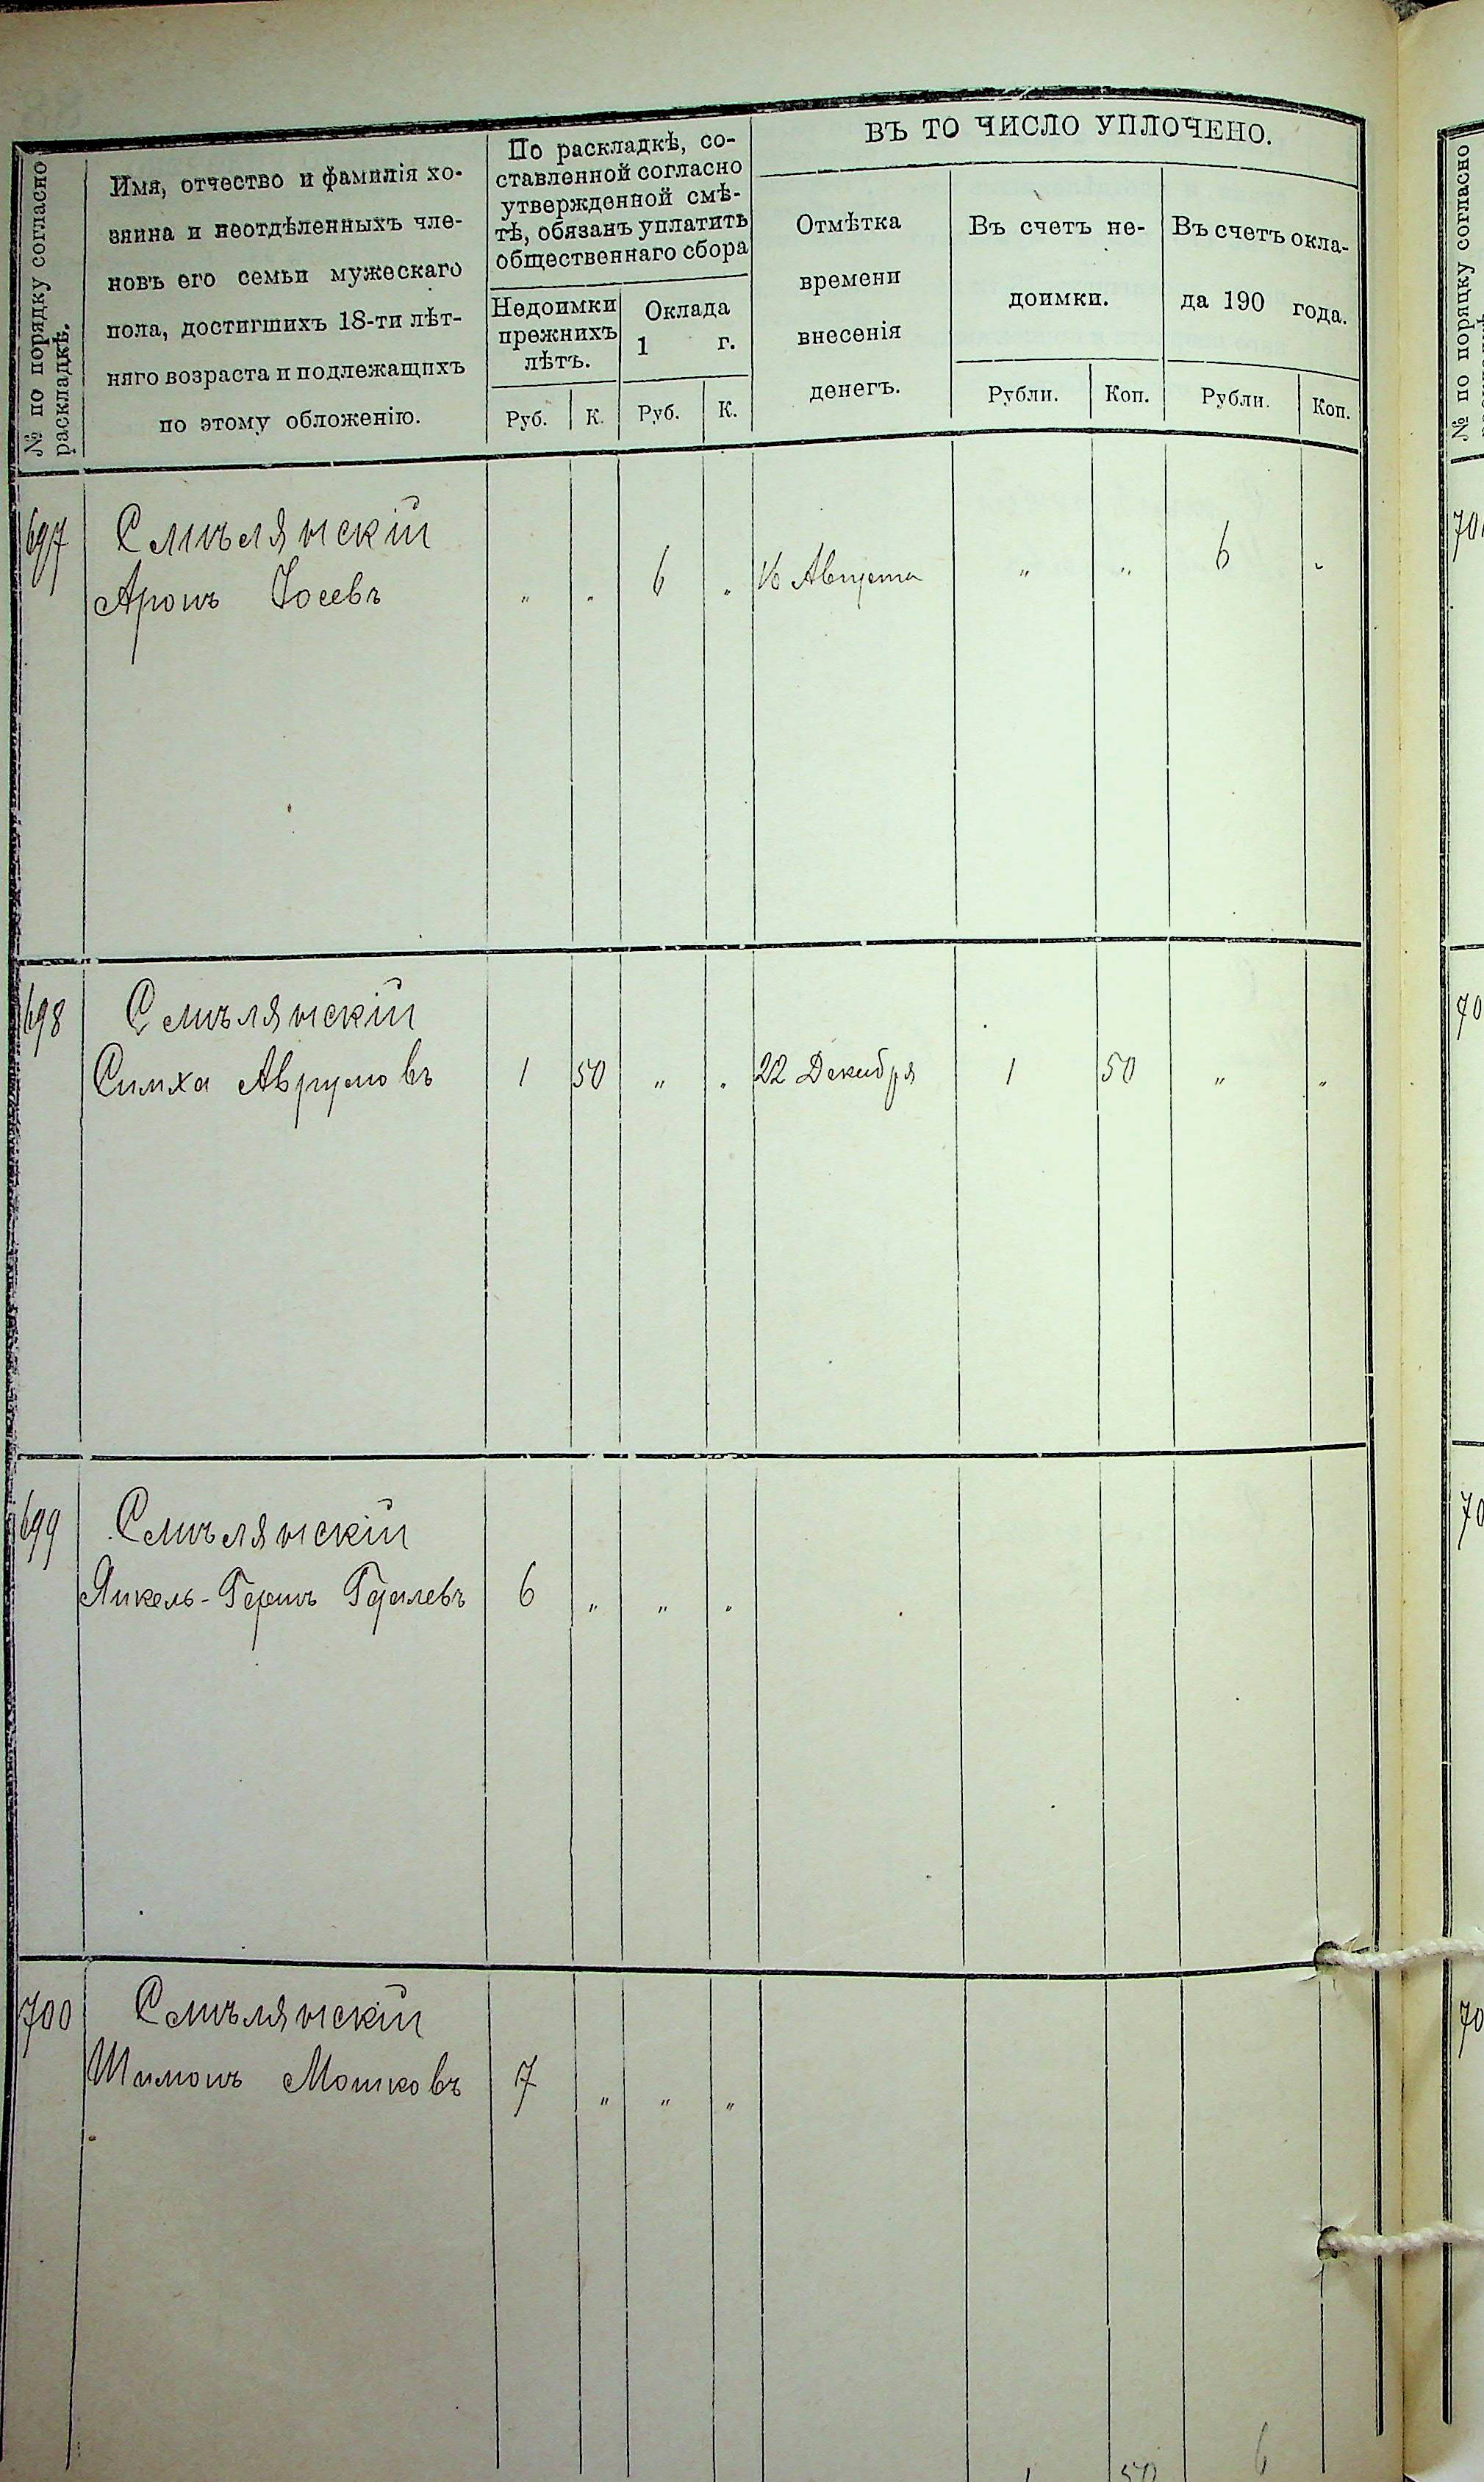 № по порядку согласно
раскладкѣ.
Имя, отчество и фамилія хо-
зяина и неотдѣленныхъ чле-
новъ его семьи мужескаго
пола, достигшихъ 18-ти лѣт-
няго возраста и подлежащихъ
по этому обложенію.
По раскладкѣ, со-
ставленной согласно
утвержденной смѣ-
тѣ, обязанъ уплатить
общественнаго сбора
Недоимки
прежнихъ
лѣтъ.
Оклада
1 г.
Руб. К. Руб. К.
ВЪ ТО ЧИСЛО УПЛОЧЕНО.
Отмѣтка
времени
внесенія
денегъ.
Въ счетъ не-
доимки.
Рубли. Коп.
Въ счетъ окла-
да 190 года.
Рубли. Коп.
697 Смѣлянскій
Аронъ Іосевъ " " 6 " 16 Августа " " 6 "
698 Смѣлянскій
Симха Аврумовъ 1 50 " " 22 Декабря 1 50 " "
699 Смѣлянскій
Янкель-Гершъ Гдалевъ 6 " " "
700 Смѣлянскій
Шимонъ Мошковъ 7 " " "
1 50 6
№ по порядку согласно
70
70
70
70